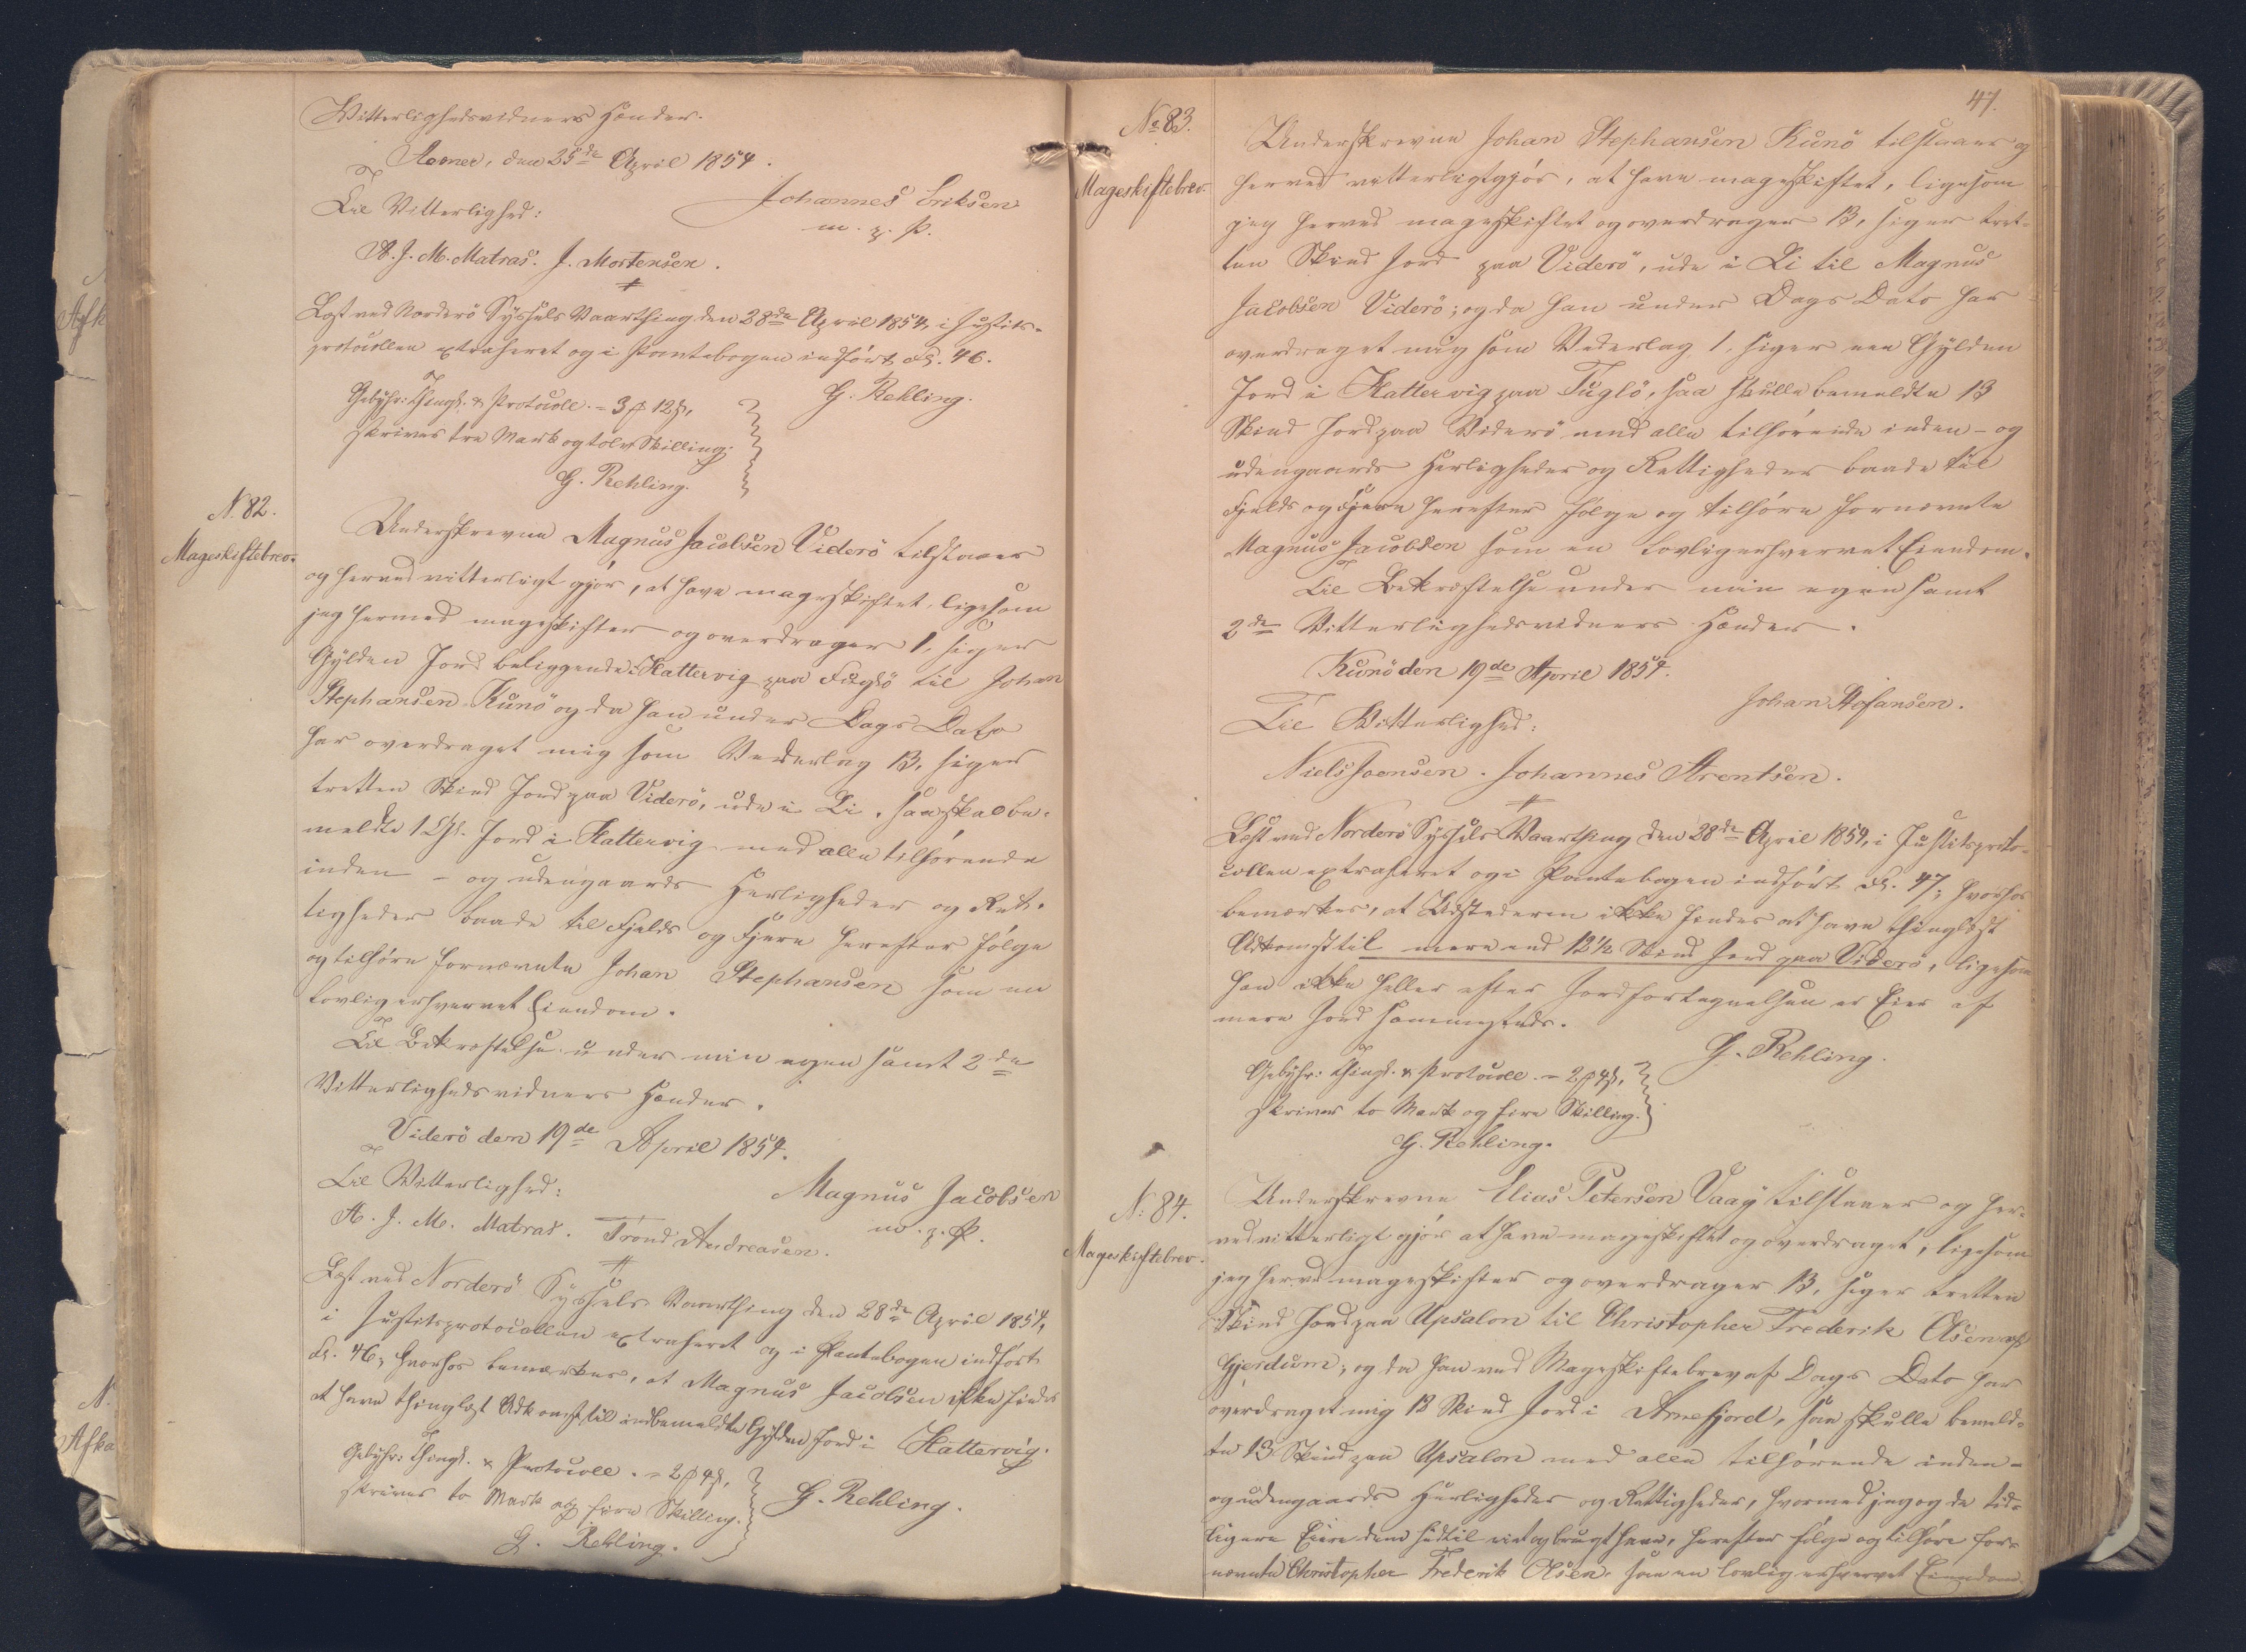 Vitterlighedsvidners Hænder.
den 25de April 1854.
Til Vitterlighed:
Johannes Eriksen
m. p. P.
A. J. M. Matras. J. Mortensen.
Læst ved Norderö Syssels Vaarthing den 28de April 1854, i Justits-
protocollen extraheret og i Pantebogen indført Fol. 46.
G. Rehling.
Gebyhr: Thingl. & Protocoll. = 3 ℳ 12 ß,
skriver tre Mark og tolv Skilling.
G. Rehling.
N. 82.
Mageskiftebrev.
Underskrevne Magnus Jacobsen Viderö tilstaaer
og herved vitterligt gjör, at have mageskiftet, ligesom
jeg hermed mageskifter og overdrager 1, siger
Gylden Jord beliggende i Hattervig paa Fuglö til Johan
Stephansen Kunö og da han under Dags Dato
har overdraget mig som Vederlag 13, siger
tretten Skind Jord paa Viderö, ude i Li, saa skal be-
meldte 1 Gl. Jord i Hattervig med alle tilhörende
inden- og udengaards Herligheder og Ret-
tigheder baade til Fjelds og Fjære herefter fölge
og tilhöre fornævnte Johan Stephansen som en
lovlig erhvervet Eiendom.
Til Bekræftelse under min egen samt 2de
Vitterlighedsvidners Hænder.
Viderö den 19de April 1854.
Til Vitterlighed:
Magnus Jacobsen
m. p. P.
A. J. M. Matras. Trond Andreasen.
Læst ved Norderö Syssels Vaarthing den 28de April 1854,
i Justitsprotocollen extraheret og i Pantebogen indfört
Fol. 46; hvorhos bemærkes, at Magnus Jacobsen ikke findes
at have thinglæst Adkomst til indbemeldte Gylden Jord i Hattervig.
Gebyhr: Thingl. & Protocoll. = 2 ℳ 4 ß,
skriver to Mark og fire Skilling.
G. Rehling.
G. Rehling.
47.
No 83.
Mageskiftebrev.
Underskrevne Johan Stephansen Kunö tilstaaer og
herved vitterligtgjör, at have mageskiftet, ligesom
jeg herved mageskiftet og overdrager 13, siger tret-
ten Skind Jord paa Viderö, ude i Li til Magnus
Jacobsen Viderö; og da han under Dags Dato har
overdraget mig som Vederlag 1, siger een Gylden
Jord i Hattervig paa Fuglö, saa skulle bemeldte 13
Skind Jord paa Viderö med alle tilhörende inden- og
udengaards Herligheder og Rettigheder baade til
Fjelds og Fjære herefter fölge og tilhöre fornævnte
Magnus Jacobsen som en lovligerhvervet Eiendom.
Til Bekræftelse under min egen samt
2de Vitterlighedsvidners Hænder.
Kunö den 19de April 1854.
Johan Stefansen.
Til Vitterlighed:
Niels Joensen. Johannes Arentsen.
Læst ved Norderö Syssels Vaarthing den 28de April 1854, i Justitsproto-
collen extraheret og i Pantebogen indfört Fol. 47; hvorhos
bemærkes, at Udstederen ikke findes at have thinglæst
Adkomst til mere end 12½ Skind Jord paa Viderö, ligesom
han ikke heller efter Jordfortegnelsen er Eier af
mere Jord sammesteds.
G. Rehling.
Gebyhr: Thingl. & Protocoll. = 2 ℳ 4 ß,
skriver to Mark og fire Skilling.
G. Rehling.
N. 84.
Mageskiftebrev.
Underskrevne Elias Petersen Vaag tilstaaer og her-
ved vitterligt gjör at have mageskiftet og overdraget, ligesom
jeg herved mageskifter og overdrager 13, siger tretten
Skind Jord paa Upsalon til Christopher Frederik Olsen af
Gjerdum; og da han ved Mageskiftebrev af Dags Dato har
overdraget mig 13 Skind Jord i Arnefjord, saa skulle bemeld-
te 13 Skind paa Upsalon med alle tilhörende inden-
og udengaards Herligheder og Rettigheder, hvormed jeg og de tid-
ligere Eiere dem hidtil eiet og brugt have, herefter fölge og tilhöre for-
nævnte Christopher Frederik Olsen som en lovlig erhvervet Eiendom.